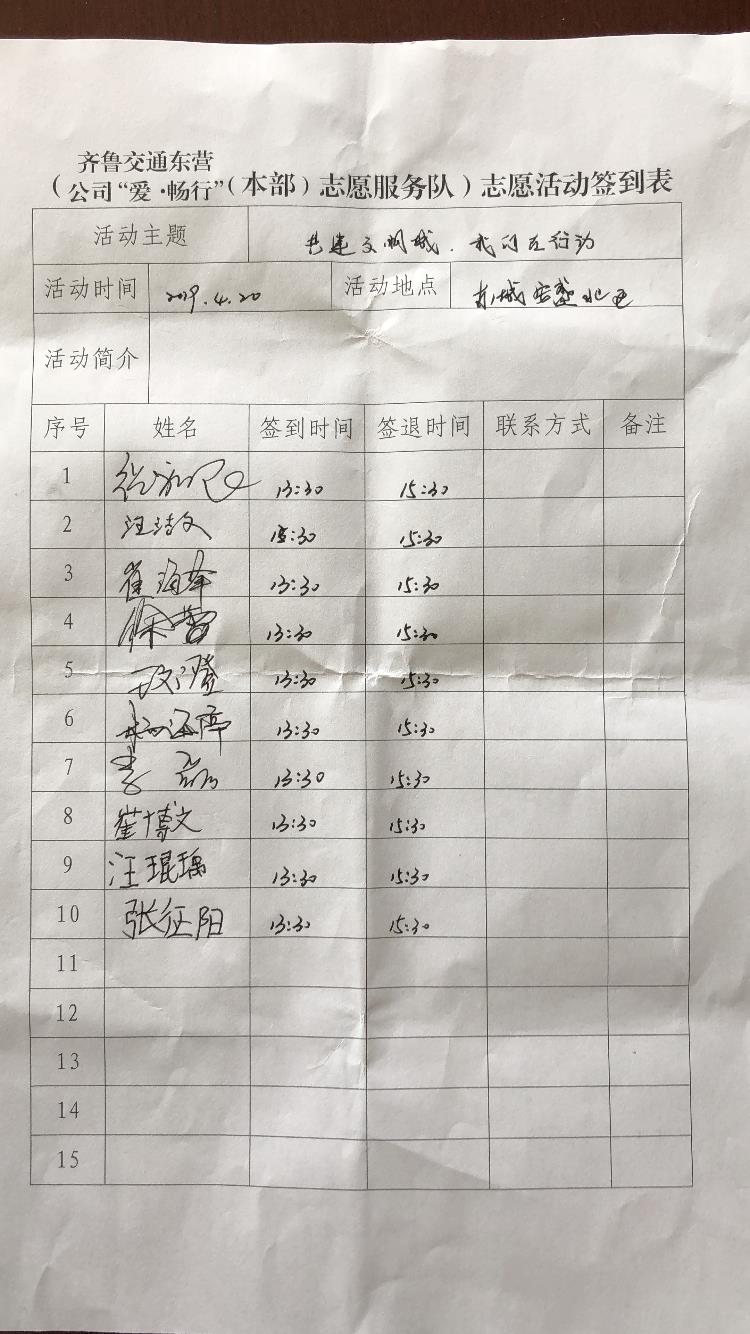 齐鲁交通东营
（公司“爱·畅行”（本部）志愿服务队）志愿活动签到表
活动主题 共建文明城．我们在行动
活动时间 2019.4.20 活动地点 东城
活动简介
序号 姓名 签到时间 签退时间 联系方式 备注
1 13:30 15:30
2 汪洁文 15:30 15:30
3 崔海峰 13:30 15:30
4 13:30 15:30
5 13:30 15:30
6 13:30 15:30
7 李 13:30 15:30
8 崔博文 13:30 15:30
9 汪琨瑀 13:30 15:30
10 张征阳 13:30 15:30
11
12
13
14
15